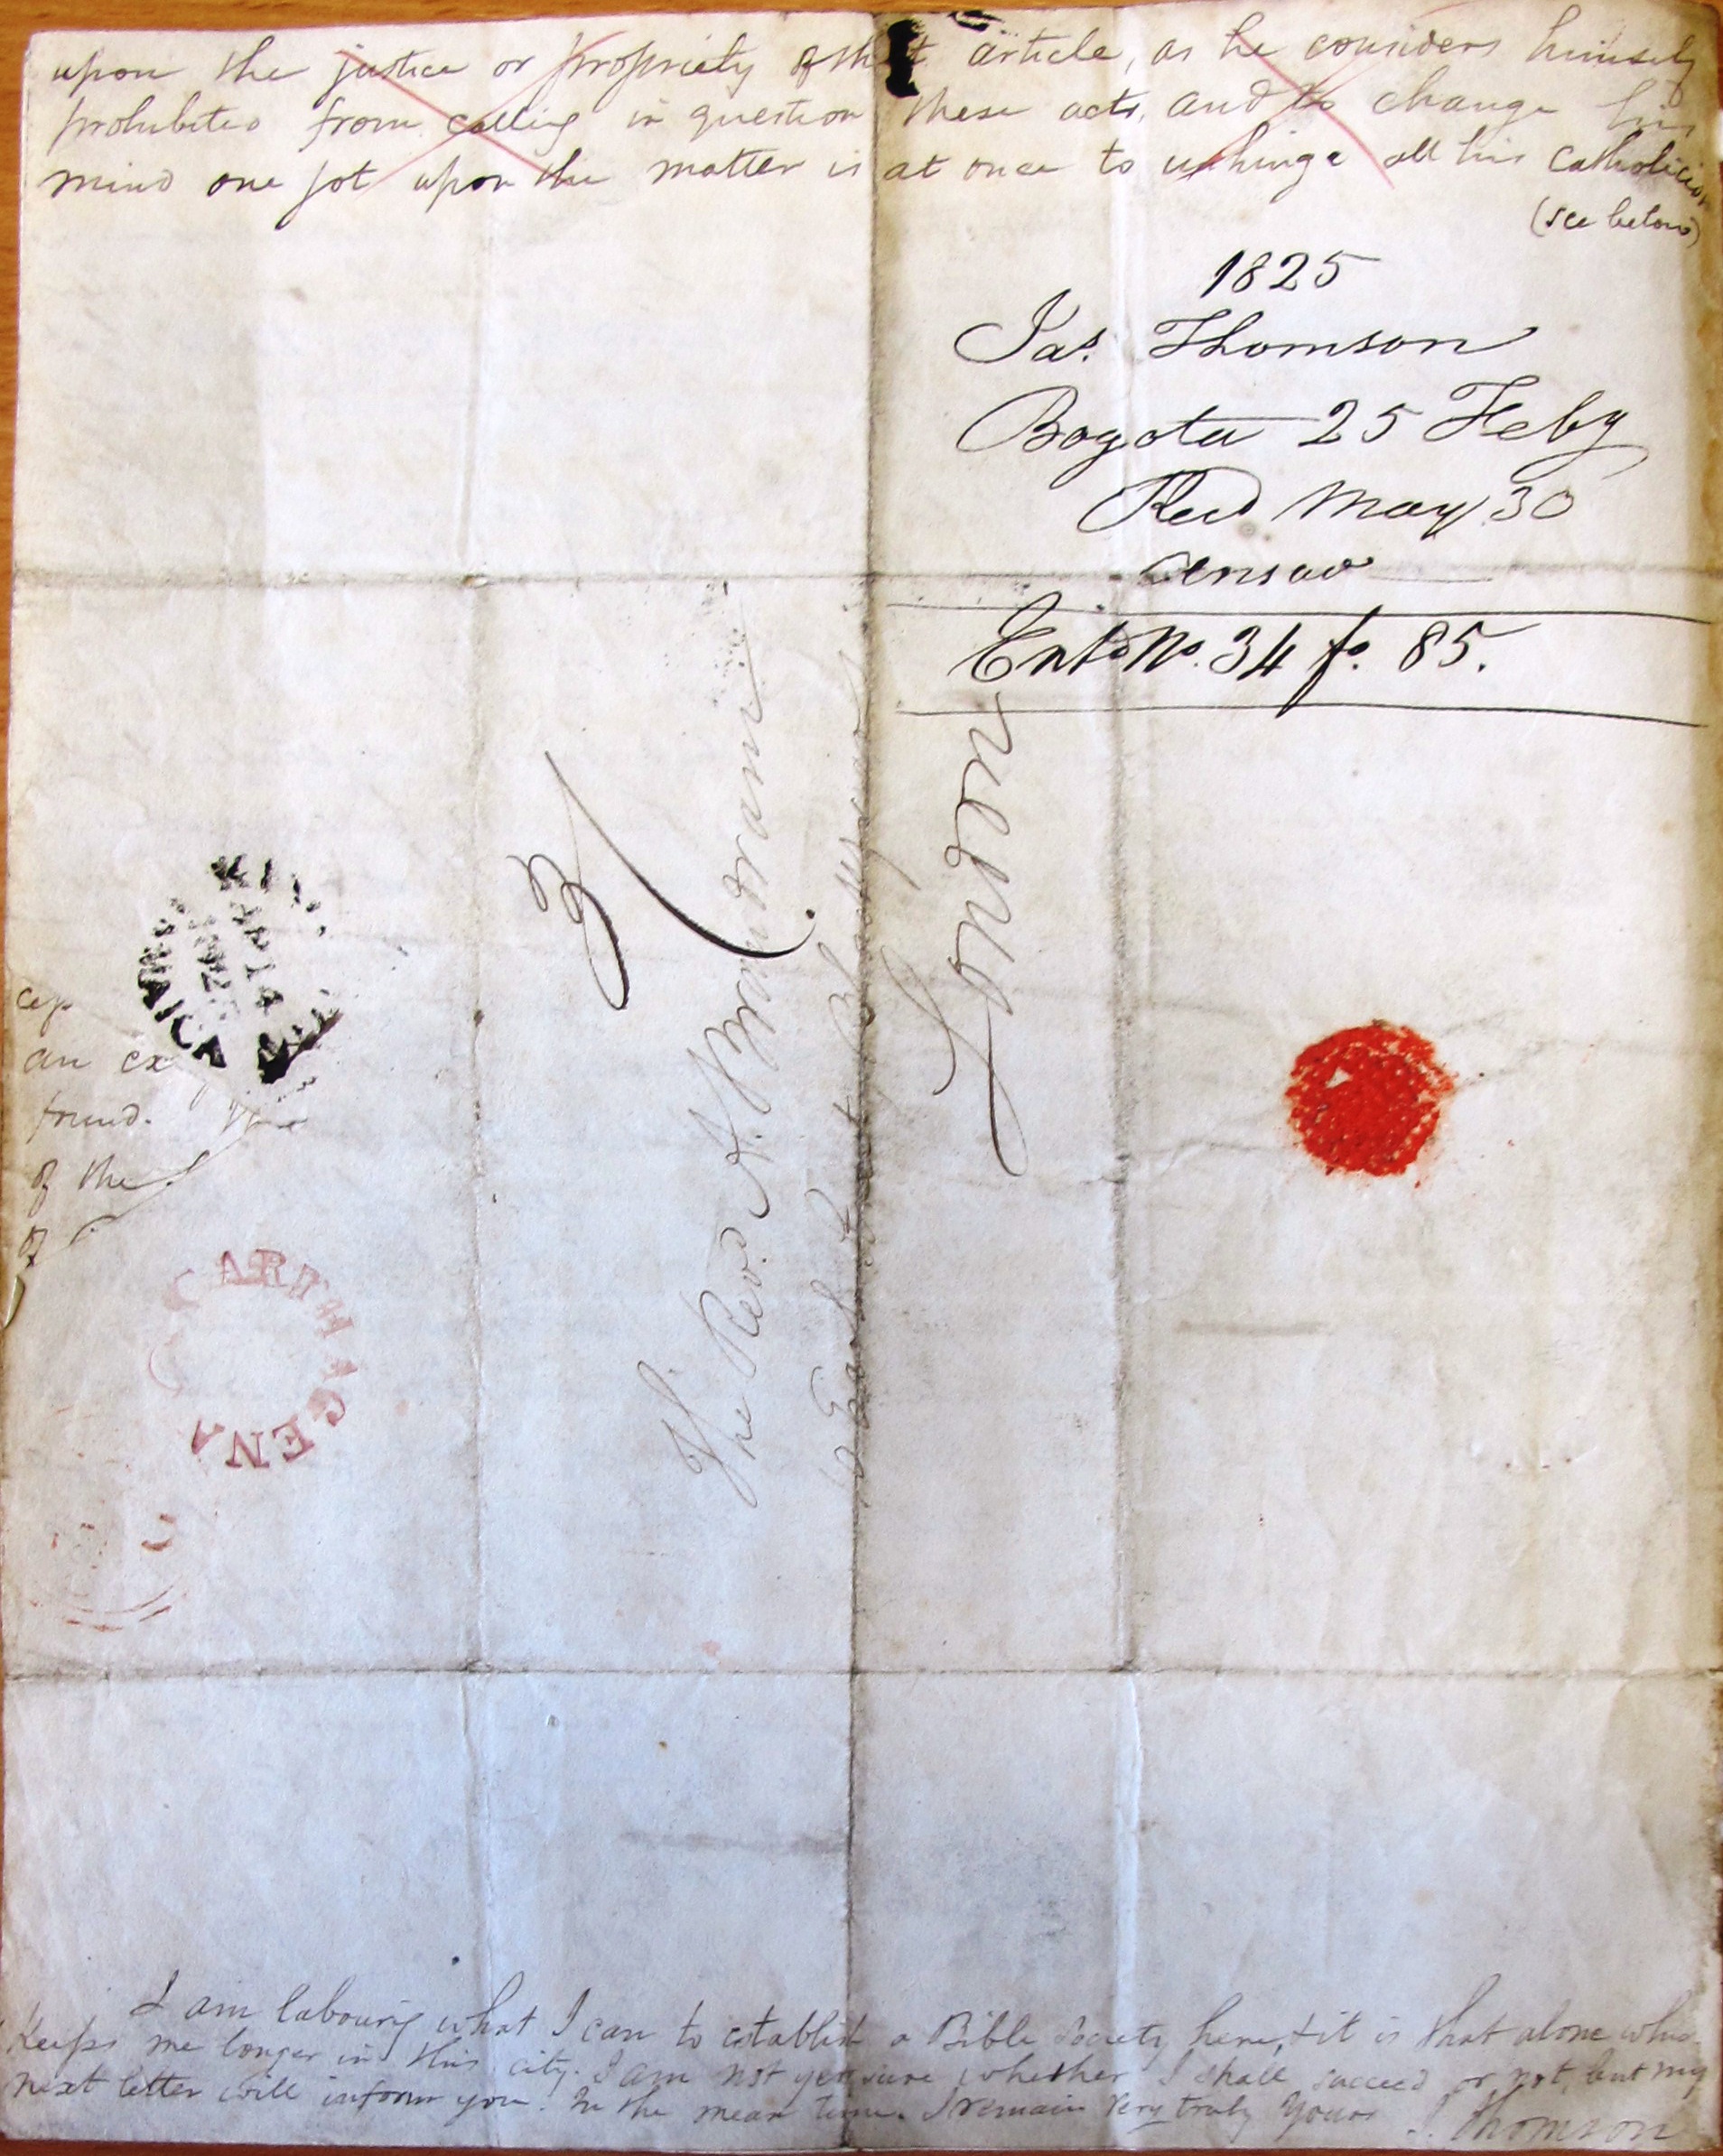 upon the justice or propriety of that article, as he considers himself
prohibited from calling in question these acts, and to change his
mind one jot upon the matter is at once to unhinge all his Catholicism
(see below)
1825
Jas. Thomson
Bogota 25 Feby
Recd May 30
Ent. No. 34 fo. 85.
3
The Revd. A. Brandram
London
KI
AP 14
JAMAICA
cep
an ex
friend.
of the
of
CARTHAGENA
I am labouring what I can to establish a Bible Society here, & it is that alone whic
keeps me longer in this city. I am not yet sure whether I shall succeed or not, but my
next letter will inform you. In the mean time. I remain Very truly Yours J. Thomson